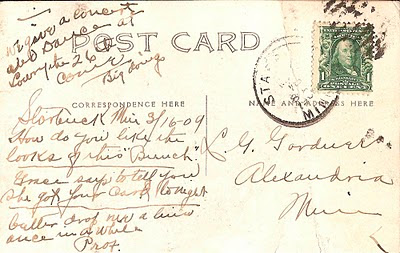 We give a concert
and Dance at
Lowry the 26
Come
Big doings
POST CARD
CORRESPONDENCE HERE
NAME AND ADDRESS HERE
STA
MIN
1
Starbuck Min 3/16-09
How do you like the
looks of this "Bunch".
Grace says to tell you
she got your Card to-night
better drop me a line
once in a while
Prof.
C. G. Gordner
Alexandria
Minn